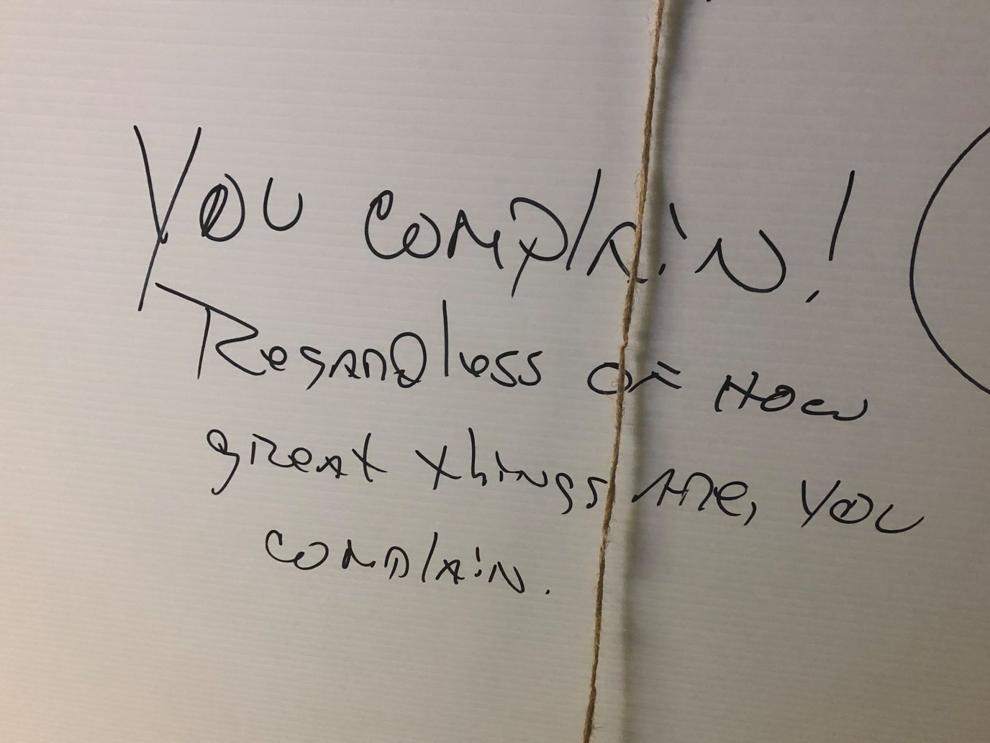 You complain!
Regardless of How
great things are, you
complain.